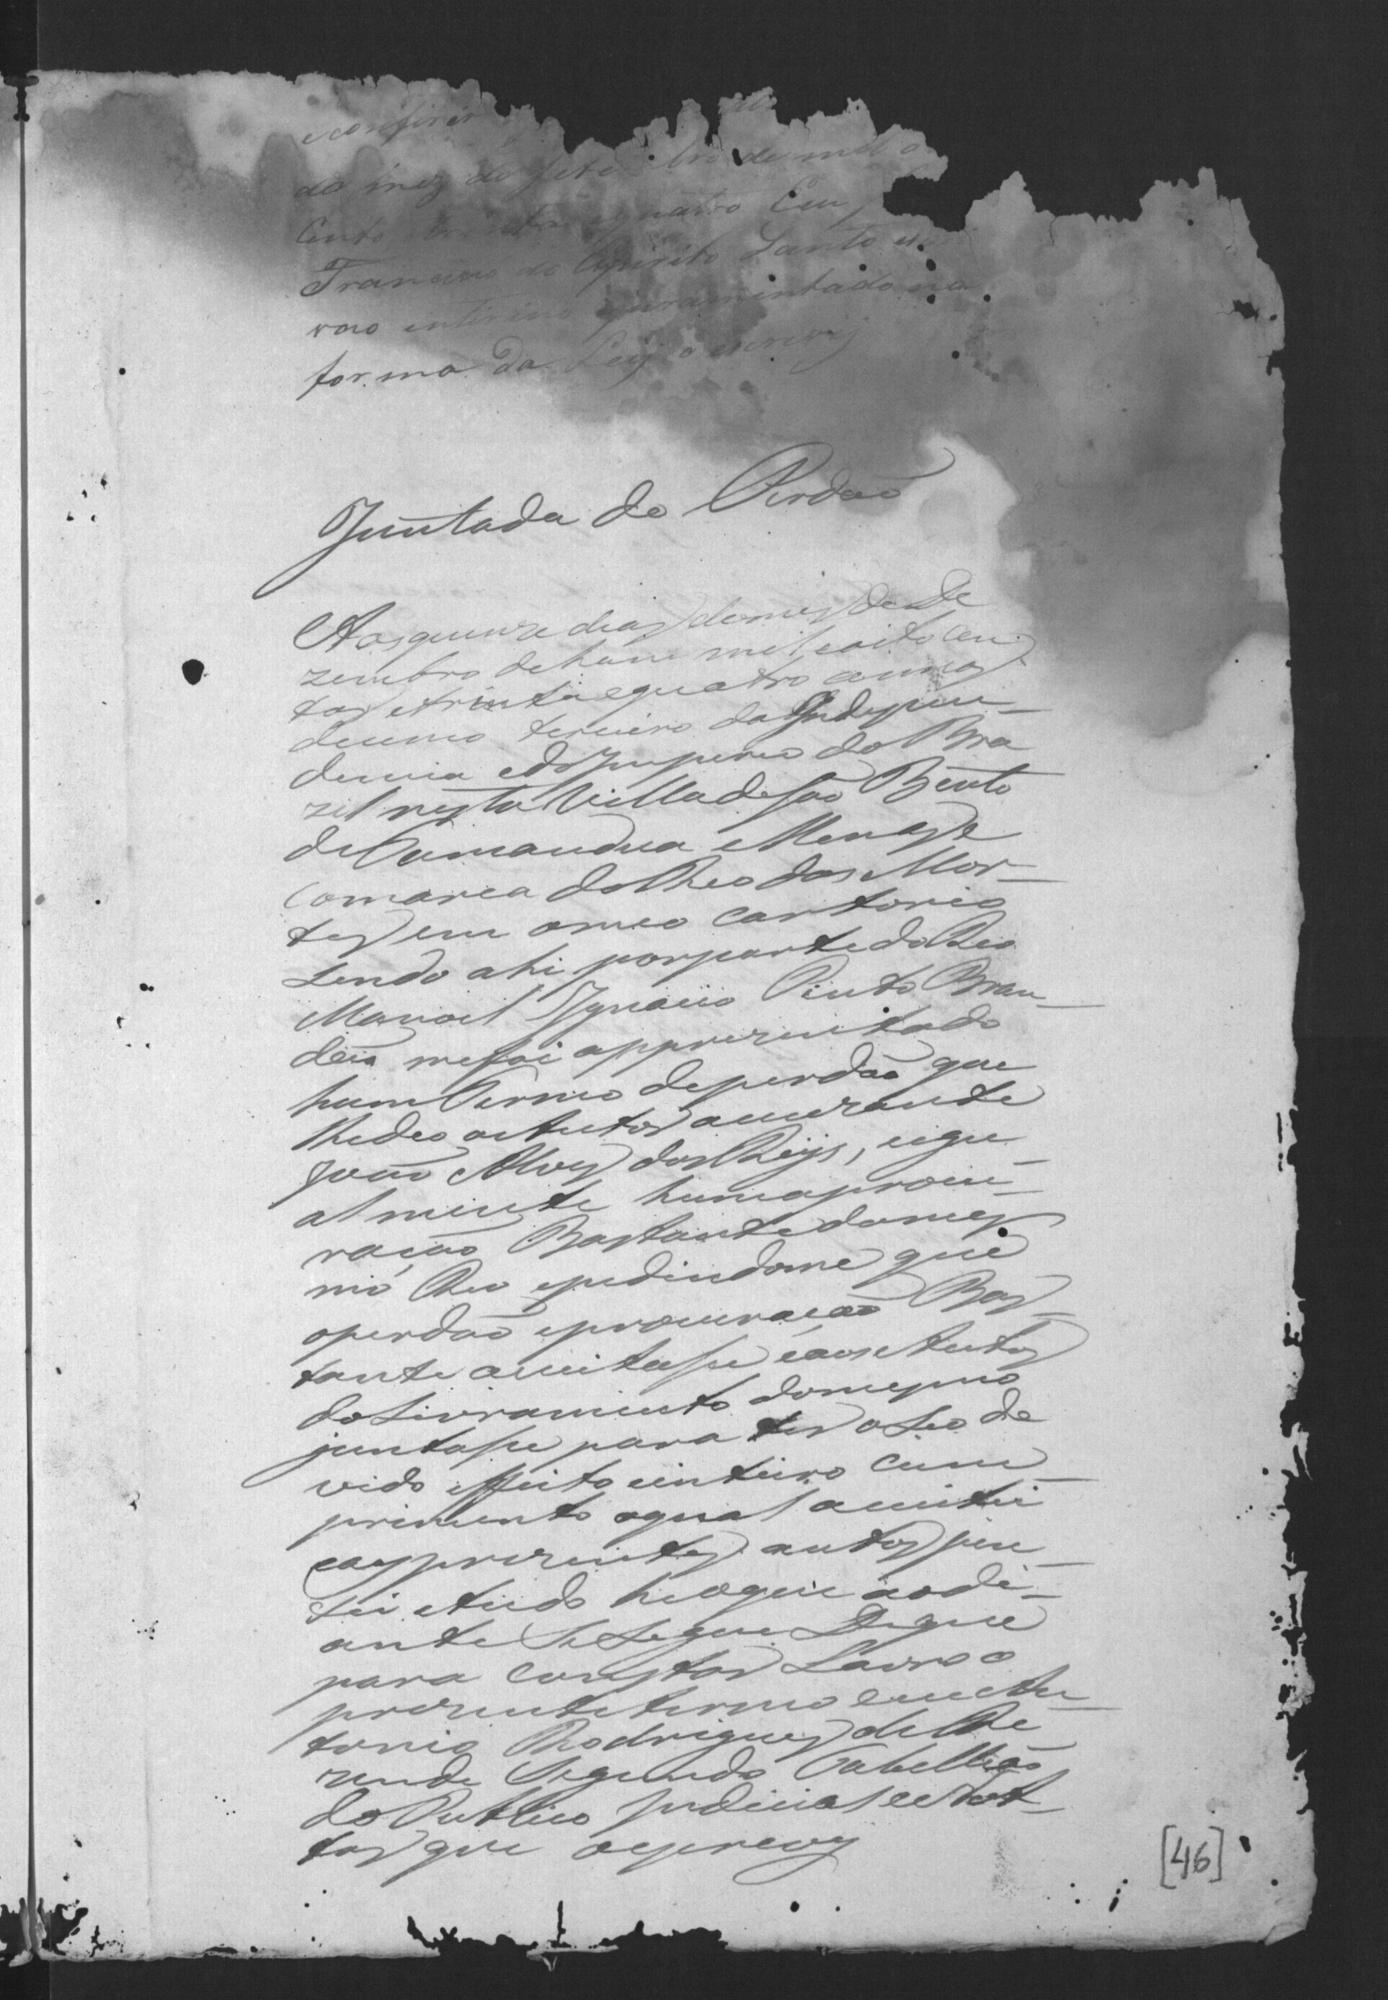 e conferir
do mez de Sete bro de mil o
Cento e trinta e quatro Eu
Francisco do Espirito Santo escri
vão enterino juramentado na
forma da Ley o escrevy
Juntada de Perdão
Aos quinze dias do mes de De
zembro de hum mil e oito cen
tos e trinta e quatro annos
decimo terceiro da Indepen
dencia e do Imperio do Bra
zil nesta Villa de São Bento
de Tamandua e Menas e
Comarca do Rio das Mor
tes em o meo cartorio
sendo ahi por parte do Reo
Manoel Ignacio Pinto Bran
dão me foi apprezentado
hum Termo de perdão que
lhe deo o Autor acuzante
João Alves dos Reys, e igu
almente huma procu
ração Bastante do mes
mo Reo e pedindome que
o perdão e procuração Bas
tante aceitasse e aos Autos
do Livramento do mesmo
juntasse para ter o seo de
vido effeito e inteiro cum
primento o qual aceitei
e aos prezentes autos jun
tei e tudo he o que ao di
ante se segue De que
para constar Lavro o
prezente termo Eu An
tonio Rodrigues de Re
zende Segundo Tabellião
do Publico Judicial e Not
tas que o escrevy
[46]